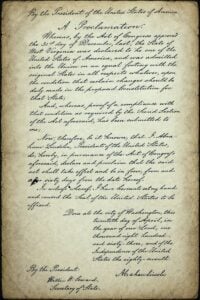 By the President of the United States of America
A Proclamation.
Whereas, by the Act of Congress approved
the 31st day of December, last, the State of
West Virginia was declared to be one of the
United States of America, and was admitted
into the Union on an equal footing with the
original States in all respects whatever, upon
the condition that certain changes should be
duly made in the proposed Constitution for
that State;
And, whereas, proof of a compliance with
that condition as required by the Second Section
of the Act aforesaid, has been submitted to
me;
Now, therefore, be it known, that I Abra-
ham Lincoln, President of the United States,
do, hereby, in pursuance of the Act of Congress
aforesaid, declare and proclaim that the said
act shall take effect and be in force, from and
after sixty days from the date hereof.
In witness whereof, I have hereunto set my hand
and caused the Seal of the United States to be
affixed.
Done at the city of Washington, this
twentieth day of April, in
the year of our Lord, one
thousand eight hundred
and sixty-three, and of the
Independence of the United
States the eighty-seventh.
Abraham Lincoln
By the President:
William H. Seward,
Secretary of State.